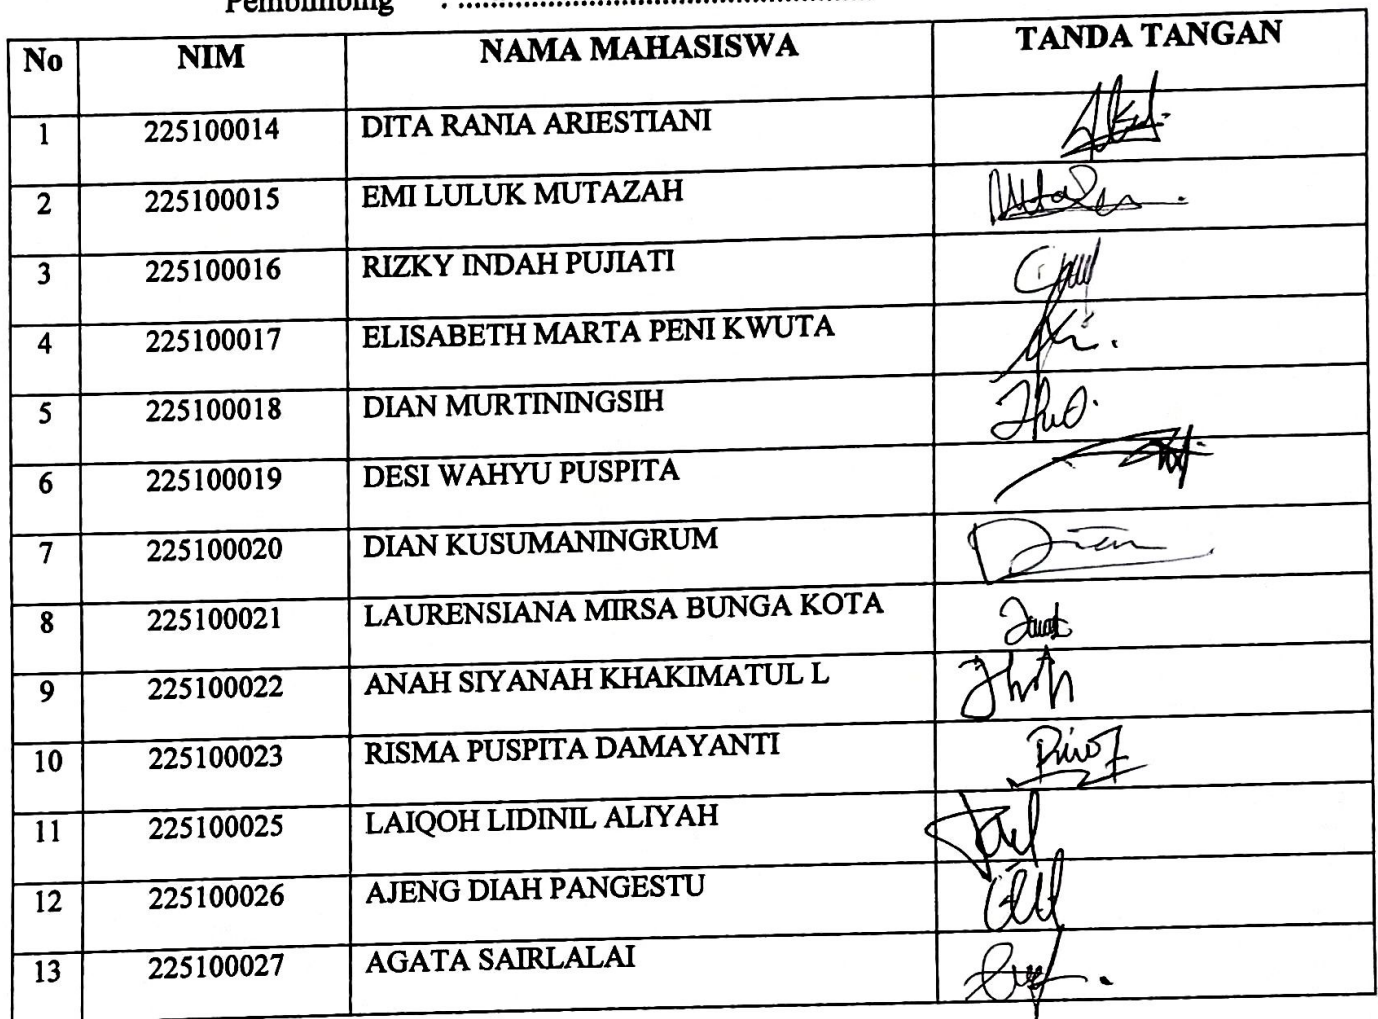 Pembimbing : ........................................................
No NIM NAMA MAHASISWA TANDA TANGAN
1 225100014 DITA RANIA ARIESTIANI
2 225100015 EMI LULUK MUTAZAH
3 225100016 RIZKY INDAH PUJIATI
4 225100017 ELISABETH MARTA PENI KWUTA
5 225100018 DIAN MURTININGSIH
6 225100019 DESI WAHYU PUSPITA
7 225100020 DIAN KUSUMANINGRUM
8 225100021 LAURENSIANA MIRSA BUNGA KOTA
9 225100022 ANAH SIYANAH KHAKIMATUL L
10 225100023 RISMA PUSPITA DAMAYANTI
11 225100025 LAIQOH LIDINIL ALIYAH
12 225100026 AJENG DIAH PANGESTU
13 225100027 AGATA SAIRLALAI